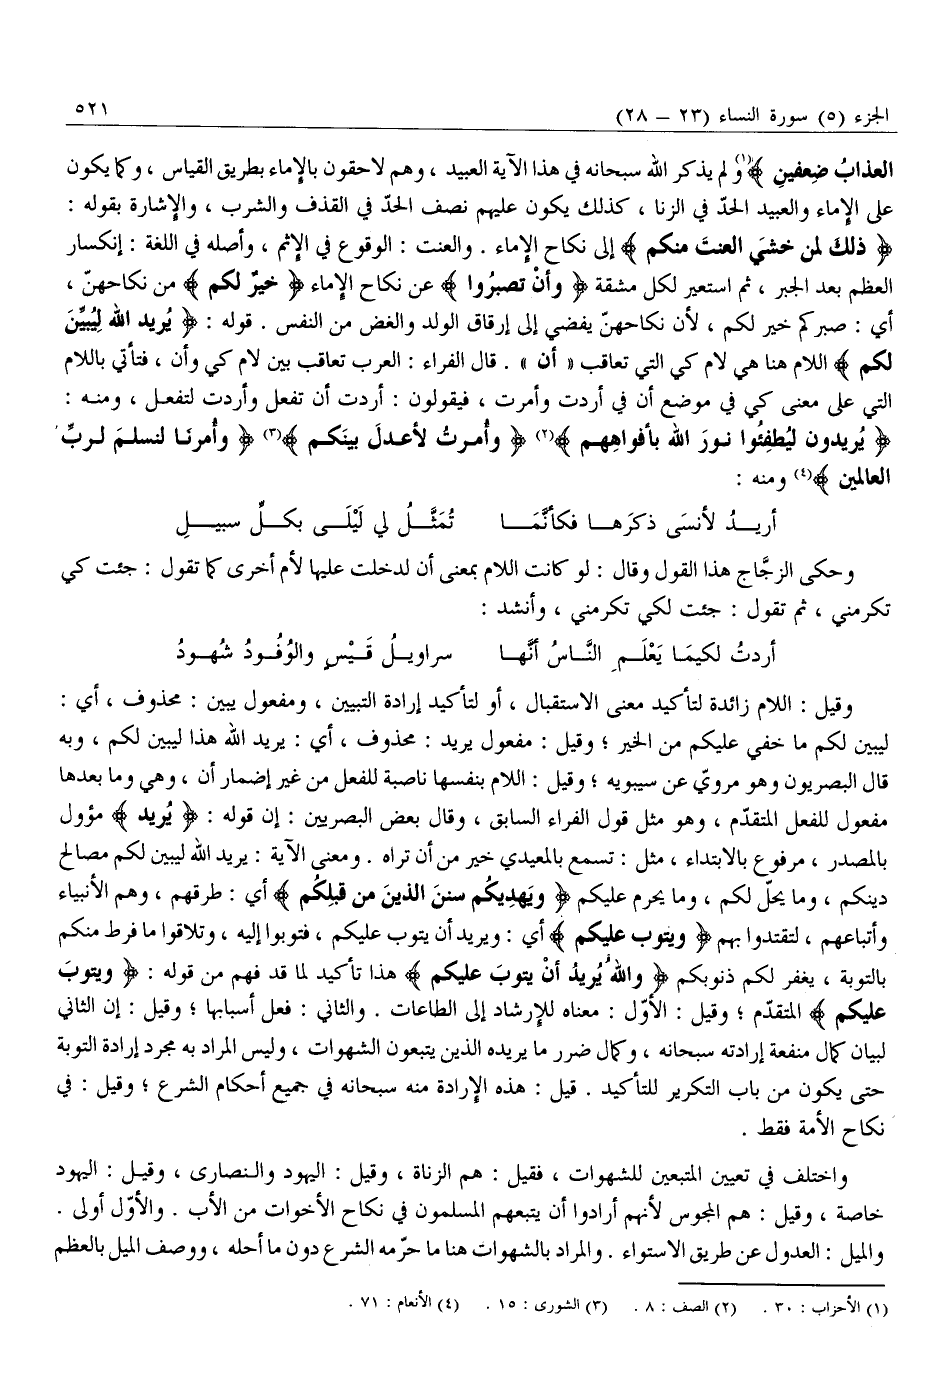 الجزء (٥) سورة النساء (٢٣ – ٢٨) ٥٢١
العذابُ ضِعفينِ ﴾(١) ولم يذكر الله سبحانه في هذا الآية العبيد ، وهم لاحقون بالإماء بطريق القياس ، وكما يكون
على الإماء والعبيد الحدّ في الزنا ، كذلك يكون عليهم نصف الحدّ في القذف والشرب ، والإشارة بقوله :
﴿ ذلكَ لمن خشيَ العنتَ منكم ﴾ إلى نكاح الإماء . والعنت : الوقوع في الإثم ، وأصله في اللغة : إنكسار
العظم بعد الجبر ، ثم استعير لكل مشقة ﴿ وأنْ تصبرُوا ﴾ عن نكاح الإماء ﴿ خيرٌ لكم ﴾ من نكاحهنّ ،
أي : صبركم خير لكم ، لأن نكاحهنّ يفضي إلى إرقاق الولد والغض من النفس . قوله : ﴿ يُريد الله لِيُبيِّنَ
لكم ﴾ اللام هنا هي لام كي التي تعاقب « أن » . قال الفراء : العرب تعاقب بين لام كي وأن ، فتأتي باللام
التي على معنى كي في موضع أن في أردت وأمرت ، فيقولون : أردت أن تفعل وأردت لتفعل ، ومنه :
﴿ يُريدون ليُطفِئُوا نورَ الله بأفواهِهم ﴾(٢) ﴿ وأُمرتُ لأعدلَ بينَكم ﴾(٣) ﴿ وأُمرنَا لنسلمَ لربِّ
العالمين ﴾(٤) ومنه :
أريدُ لأنسَى ذكرَها فكأنَّمَا تُمَثَّلُ لي لَيْلَى بكلِّ سبيلِ
وحكى الزجَّاج هذا القول وقال : لو كانت اللام بمعنى أن لدخلت عليها لأم أخرى كما تقول : جئت كي
تكرمني ، ثم تقول : جئت لكي تكرمني ، وأنشد :
أردتُ لكيمَا يَعْلَمِ النَّاسُ أنَّها سراويلُ قَيْسٍ والوُفُودُ شُهودُ
وقيل : اللام زائدة لتأكيد معنى الاستقبال ، أو لتأكيد إرادة التبيين ، ومفعول يبين : محذوف ، أي :
ليبين لكم ما خفي عليكم من الخير ؛ وقيل : مفعول يريد : محذوف ، أي : يريد الله هذا ليبين لكم ، وبه
قال البصريون وهو مرويّ عن سيبويه ؛ وقيل : اللام بنفسها ناصبة للفعل من غير إضمار أن ، وهي وما بعدها
مفعول للفعل المتقدّم ، وهو مثل قول الفراء السابق ، وقال بعض البصريين : إن قوله : ﴿ يُريد ﴾ مؤول
بالمصدر ، مرفوع بالابتداء ، مثل : تسمع بالمعيدي خير من أن تراه . ومعنى الآية : يريد الله ليبين لكم مصالح
دينكم ، وما يحلّ لكم ، وما يحرم عليكم ﴿ ويَهديكُم سننَ الذينَ من قبلِكُم ﴾ أي : طرقهم ، وهم الأنبياء
وأتباعهم ، لتقتدوا بهم ﴿ ويتوب عليكم ﴾ أي : ويريد أن يتوب عليكم ، فتوبوا إليه ، وتلاقوا ما فرط منكم
بالتوبة ، يغفر لكم ذنوبكم ﴿ واللهُ يُريدُ أنْ يتوبَ عليكم ﴾ هذا تأكيد لما قد فهم من قوله : ﴿ ويتوبَ
عليكم ﴾ المتقدّم ؛ وقيل : الأوّل : معناه للإرشاد إلى الطاعات . والثاني : فعل أسبابها ؛ وقيل : إن الثاني
لبيان كمال منفعة إرادته سبحانه ، وكمال ضرر ما يريده الذين يتبعون الشهوات ، وليس المراد به مجرد إرادة التوبة
حتى يكون من باب التكرير للتأكيد . قيل : هذه الإرادة منه سبحانه في جميع أحكام الشرع ؛ وقيل : في
نكاح الأمة فقط .
واختلف في تعيين المتبعين للشهوات ، فقيل : هم الزناة ، وقيل : اليهود والنصارى ، وقيل : اليهود
خاصة ، وقيل : هم المجوس لأنهم أرادوا أن يتبعهم المسلمون في نكاح الأخوات من الأب . والأوّل أولى .
والميل : العدول عن طريق الاستواء . والمراد بالشهوات هنا ما حرّمه الشرع دون ما أحله ، ووصف الميل بالعظم
(١) الأحزاب : ٣٠ . (٢) الصف : ٨ . (٣) الشورى : ١٥ . (٤) الأنعام : ٧١ .